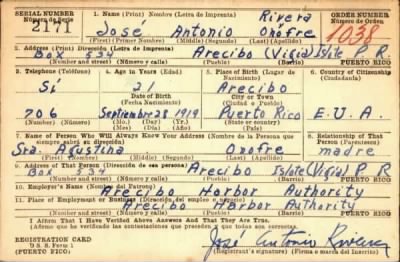 SERIAL NUMBER
Número de Serie
2171
1. Name (Print) Nombre (Letra de Imprenta)
Rivera
José Antonio Onofre
(First) (Primero) (Middle) (Segundo) (Last) (Apellido)
ORDER NUMBER
Número de Orden
1038
2. Address (Print) Dirección (Letra de Imprenta)
Box 534 Arecibo (Vigia) Islote P R
(Number and street) (Número y calle) (Barrio) PUERTO RICO
3. Telephone (Teléfono)
4. Age in Years (Edad)
5. Place of Birth (Lugar de Nacimiento)
6. Country of Citizenship (Ciudadanía)
Si 21 Arecibo
Date of Birth
(Fecha Nacimiento)
City or Town
(Ciudad o Pueblo)
706 Septiembre 28 1919 Puerto Rico E.U.A.
(Number) (Número) (Mo.) (Mes) (Day) (Día) (Yr.) (Año) (Country) (País)
7. Name of Person Who Will Always Know Your Address (Nombre de la Persona que siempre sabrá su dirección)
8. Relationship of That Person (Parentesco)
Sra. Agustina Onofre madre
(First) (Primero) (Middle) (Segundo) (Last) (Apellido)
9. Address of That Person (Dirección de esa persona)
Box 534 Arecibo Islote (Vigia) P R
(Number and street) (Número y calle) (Barrio) PUERTO RICO
10. Employer's Name (Nombre del Patrono)
Arecibo Harbor Authority
11. Place of Employment or Business (Dirección del empleo o negocio)
Arecibo Harbor Authority
(Number and street) (Número y calle) (Barrio) PUERTO RICO
I Affirm That I Have Verified Above Answers And That They Are True.
(Afirmo que he verificado las contestaciones que preceden y que son ciertas.)
REGISTRATION CARD
D S S. Form 1
(PUERTO RICO)
José Antonio Rivera
(Registrant's signature) (Firma o marca del Inscrito)